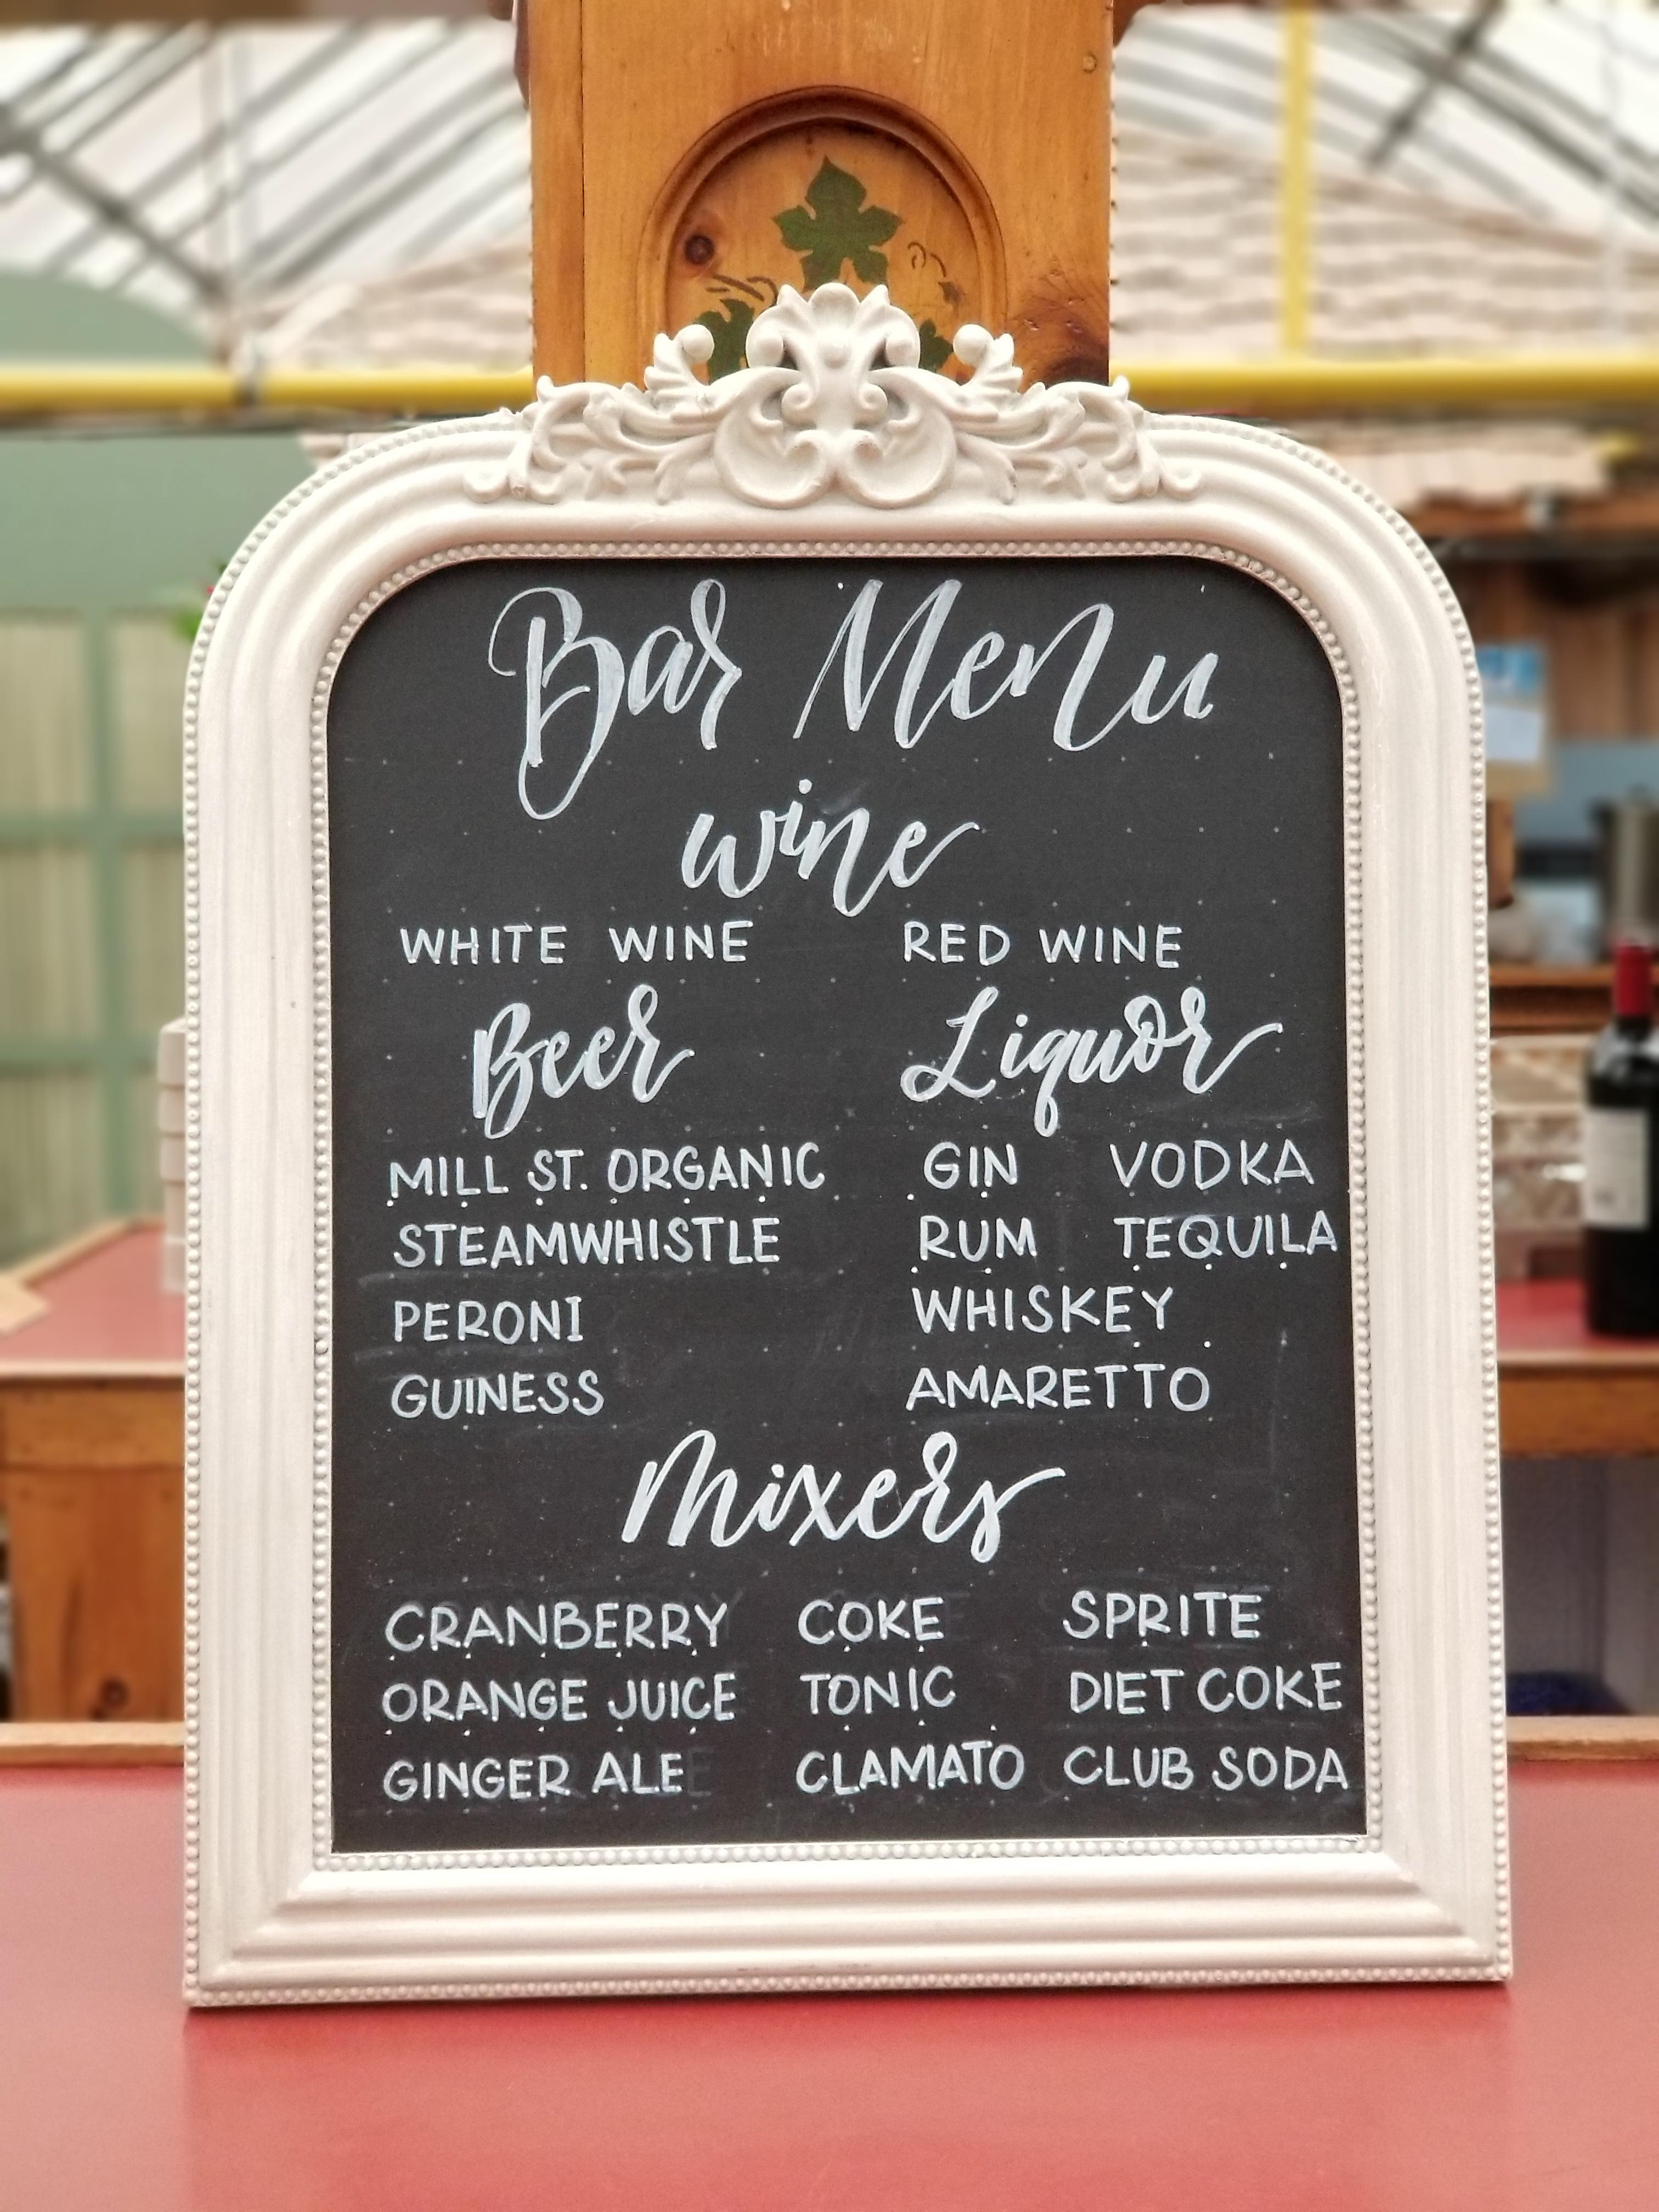 Bar Menu
wine
WHITE WINE RED WINE
Beer Liquor
MILL ST. ORGANIC GIN VODKA
STEAMWHISTLE RUM TEQUILA
PERONI WHISKEY
GUINESS AMARETTO
Mixers
CRANBERRY COKE SPRITE
ORANGE JUICE TONIC DIET COKE
GINGER ALE CLAMATO CLUB SODA